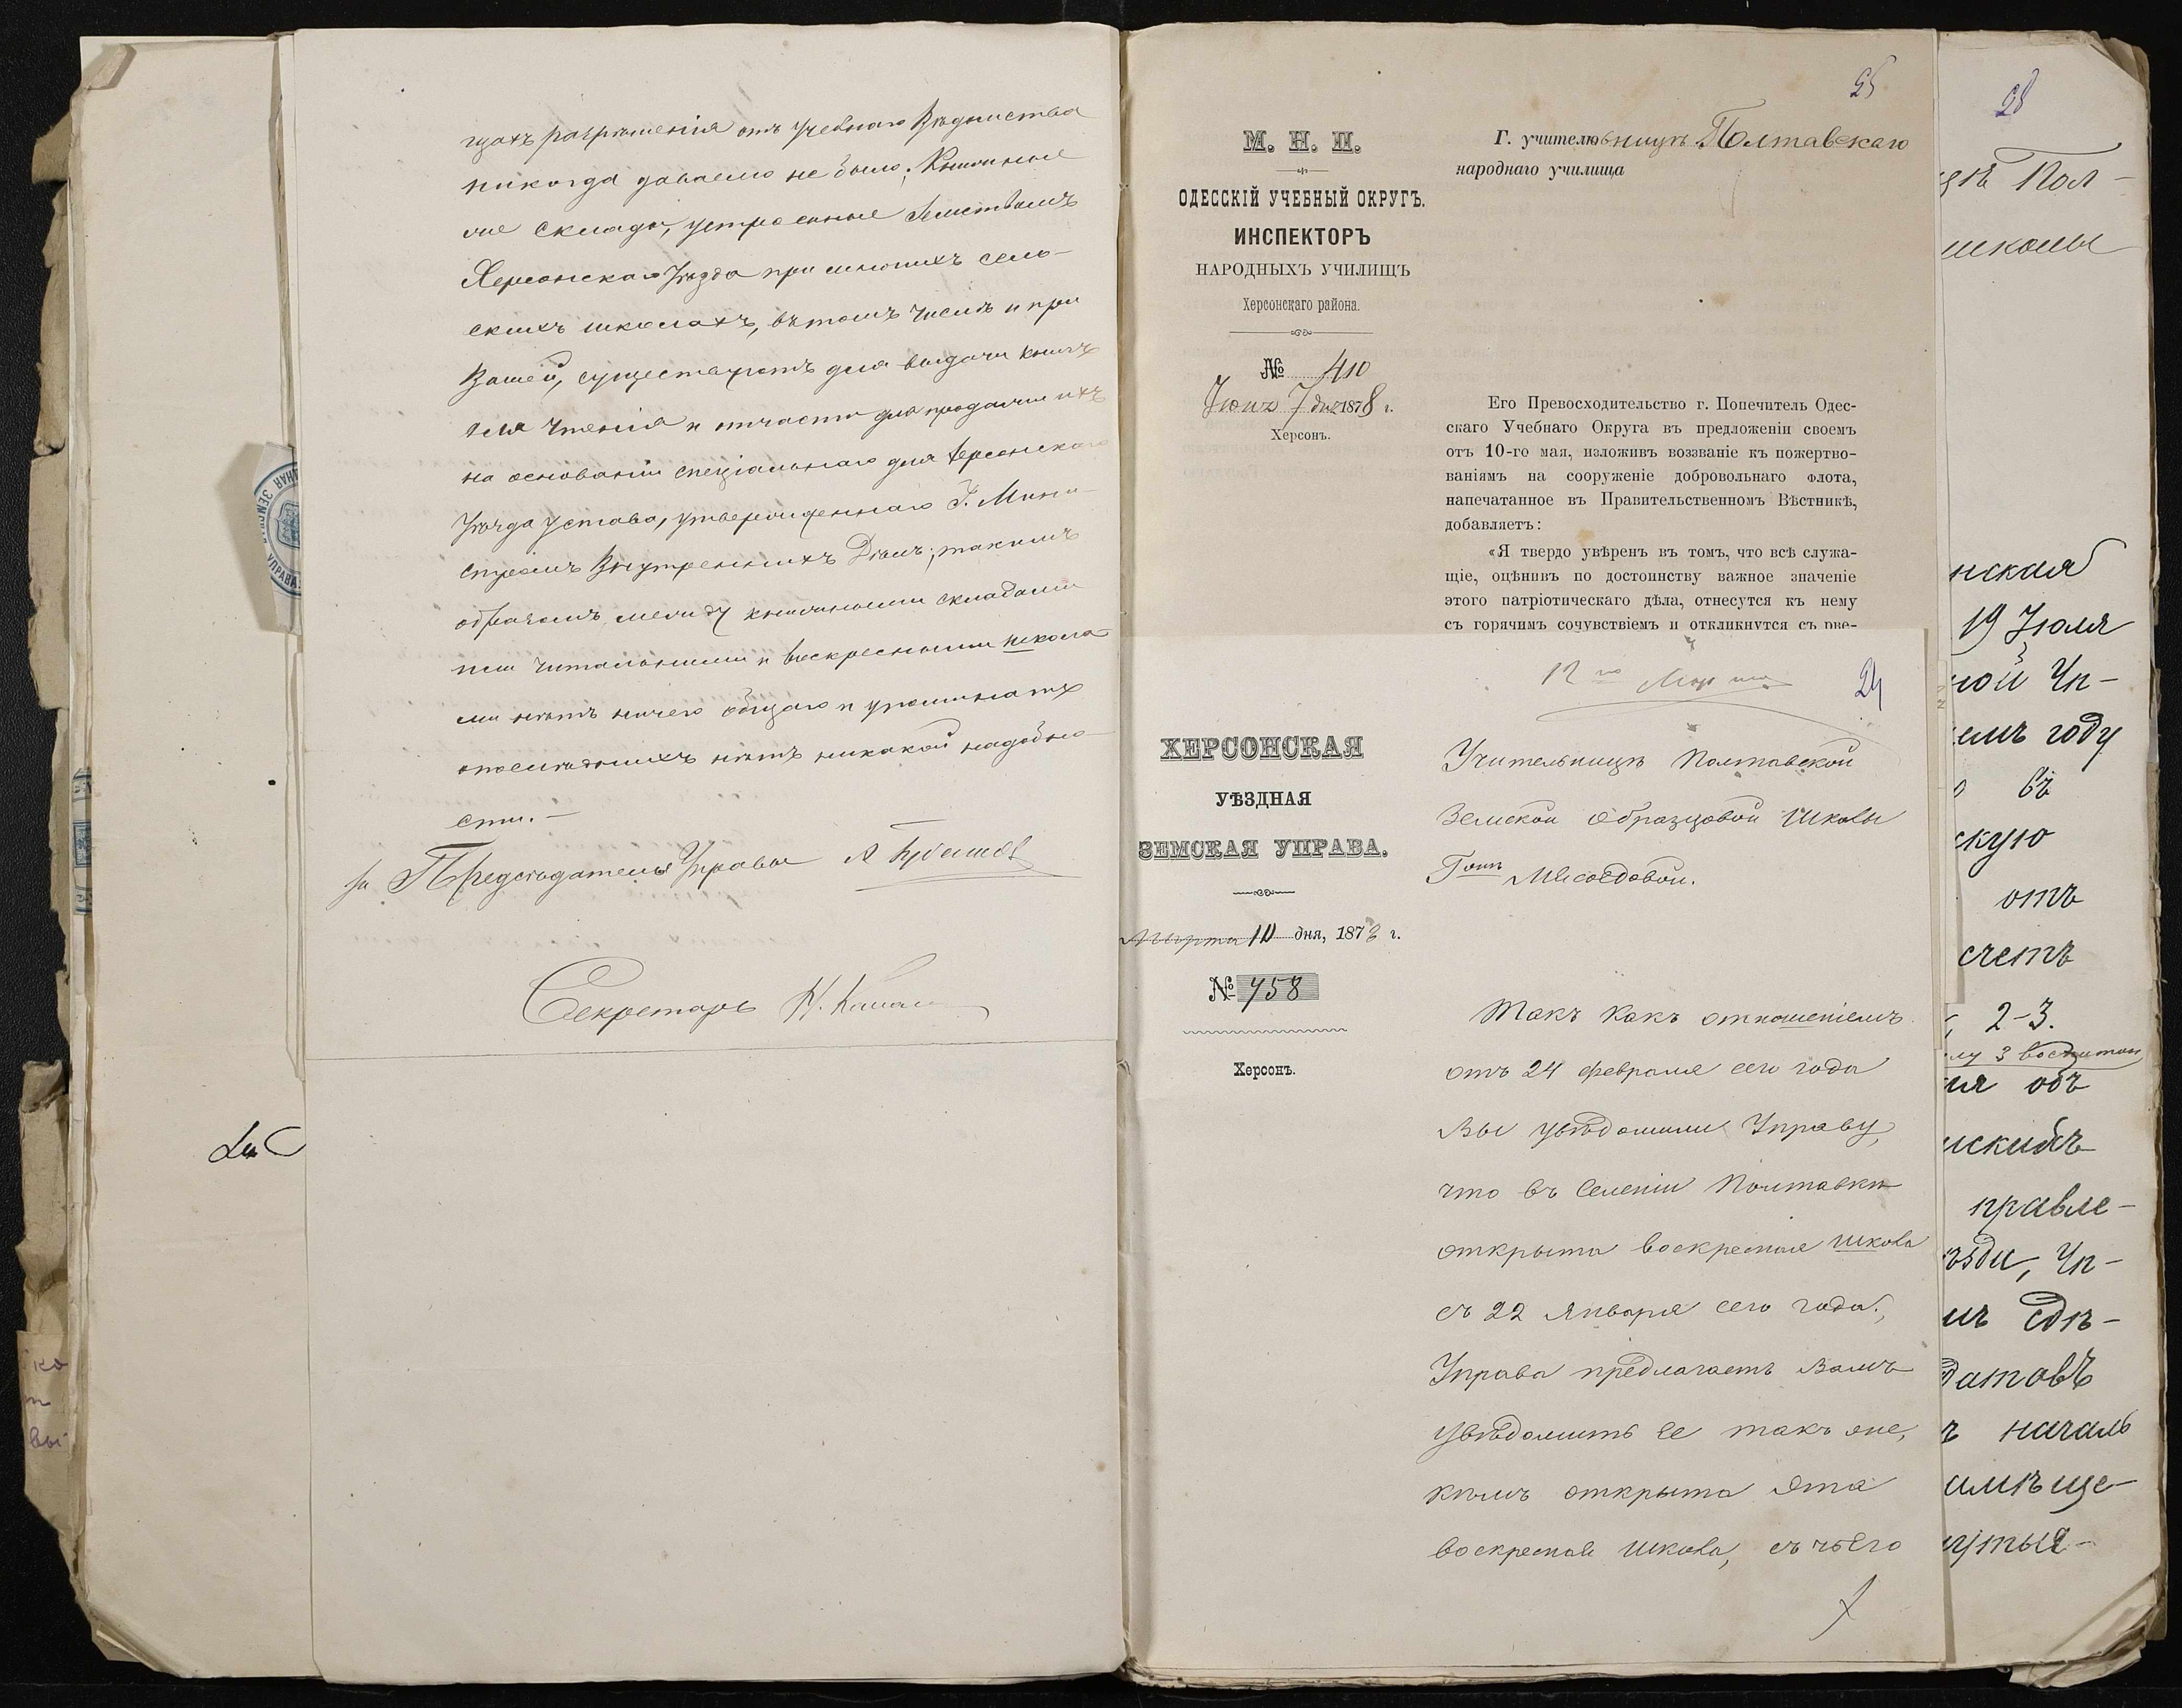 щахъ разрѣшенія отъ учебнаго Вѣдомства
никогда даваемо не было; Книжные
же склады, устроенные Земствомъ
Херсонскаго Уѣзда при многихъ сель-
скихъ школахъ, въ томъ числѣ и при
Вашей, существуютъ для выдачи книгъ
для чтенія и отчасти для продажи ихъ
на основаніи спеціальнаго для Херсонскаго
Уѣзда устава, утвержденнаго Г. Мини-
стромъ Внутреннихъ Дѣлъ; такимъ
образомъ между книжными складами
или читальнями и воскресными школа-
ми нѣтъ ничего общаго и упоминать
о нихъ нѣтъ никакой надобно-
сти. —
За Предсѣдателя Управы А
Секретарь Н.
25
М. Н. П.
ОДЕССКІЙ УЧЕБНЫЙ ОКРУГЪ.
ИНСПЕКТОРЪ
НАРОДНЫХЪ УЧИЛИЩЪ
Херсонскаго района.
№ 410
Іюнь 7 дня 1878 г.
Херсонъ.
Г. учительницѣ Полтавскаго
народнаго училища
Его Превосходительство г. Попечитель Одес-
скаго Учебнаго Округа въ предложеніи своемъ
отъ 10-го мая, изложивъ воззваніе къ пожертво-
ваніямъ на сооруженіе добровольнаго флота,
напечатанное въ Правительственномъ Вѣстникѣ,
добавляетъ:
«Я твердо увѣренъ въ томъ, что всѣ служа-
щіе, оцѣнивъ по достоинству важное значеніе
этого патріотическаго дѣла, отнесутся къ нему
съ горячимъ сочувствіемъ и откликнутся съ рве-
12го Марта
24
ХЕРСОНСКАЯ
УѢЗДНАЯ
ЗЕМСКАЯ УПРАВА.
Марта 10 дня, 1878 г.
№ 758
Херсонъ.
Учительницѣ Полтавской
Земской Образцовой Школы
Гжѣ Мясоѣдовой.
Такъ какъ отношеніемъ
отъ 24 февраля сего года
Вы увѣдомили Управу,
что въ селеніи Полтавкѣ
открыта воскресная школа
съ 22 Января сего года,
Управа предлагаетъ Вамъ
увѣдомить ее такъ же,
кѣмъ открыта эта
воскресная школа, съ чьего
28
цѣ Пол-
школы
нская
19 Іюля
ной Уп-
емъ году
въ
скую
отъ
счетъ
2-3.
ія объ
скихъ
правле-
ѣзды, Уп-
мъ сдѣ-
датовъ
началь
имѣще-